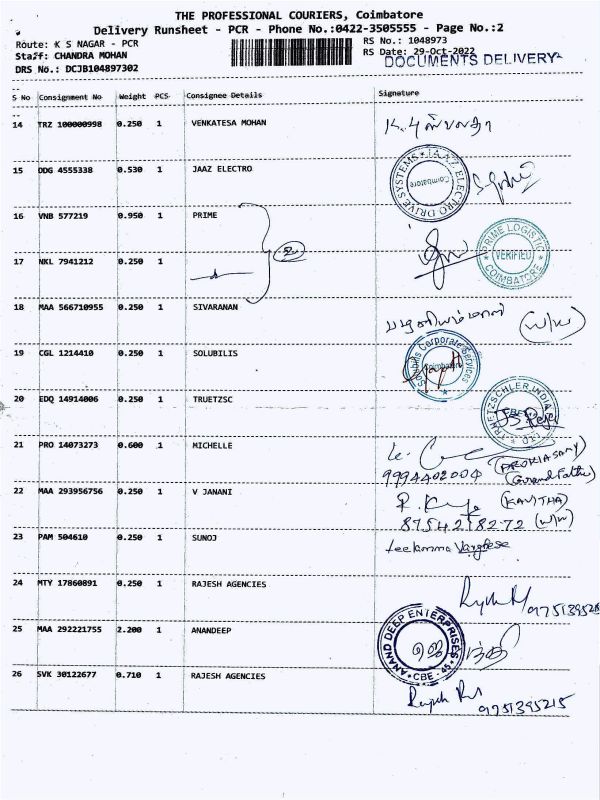 THE PROFESSIONAL COURIERS, Coimbatore
Delivery Runsheet - PCR - Phone No.:0422-3505555 - Page No.:2
Route: K S NAGAR - PCR RS No.: 1048973
Staff: CHANDRA MOHAN RS Date: 29-Oct-2022
DRS No.: DCJB104897302 DOCUMENTS DELIVERY
S No Consignment No Weight PCS Consignee Details Signature
14 TRZ 100000998 0.250 1 VENKATESA MOHAN
15 ODG 4555338 0.530 1 JAAZ ELECTRO
JAAZ ELECTRO DRIVE SYSTEMS Coimbatore
16 VNB 577219 0.950 1 PRIME
PRIME LOGISTIC VERIFIED COIMBATORE
17 NKL 7941212 0.250 1
2
18 MAA 566710955 0.250 1 SIVARANAN
(w/w)
19 CGL 1214410 0.250 1 SOLUBILIS
Solubilis Corporate Services Coimbatore
20 EDQ 14914006 0.250 1 TRUETZSC
21 PRO 14073273 0.600 1 MICHELLE
9994402004 (Grand Father)
22 MAA 293956756 0.250 1 V JANANI
(KAVITHA)
8754218272 (w/w)
23 PAM 504610 0.250 1 SUNOJ
Leelamma Varghese
24 MTY 17860891 0.250 1 RAJESH AGENCIES
25 MAA 292221755 2.200 1 ANANDEEP
ANAND DEEP ENTERPRISES CBE - 45
26 SVK 30122677 0.710 1 RAJESH AGENCIES
9751395215